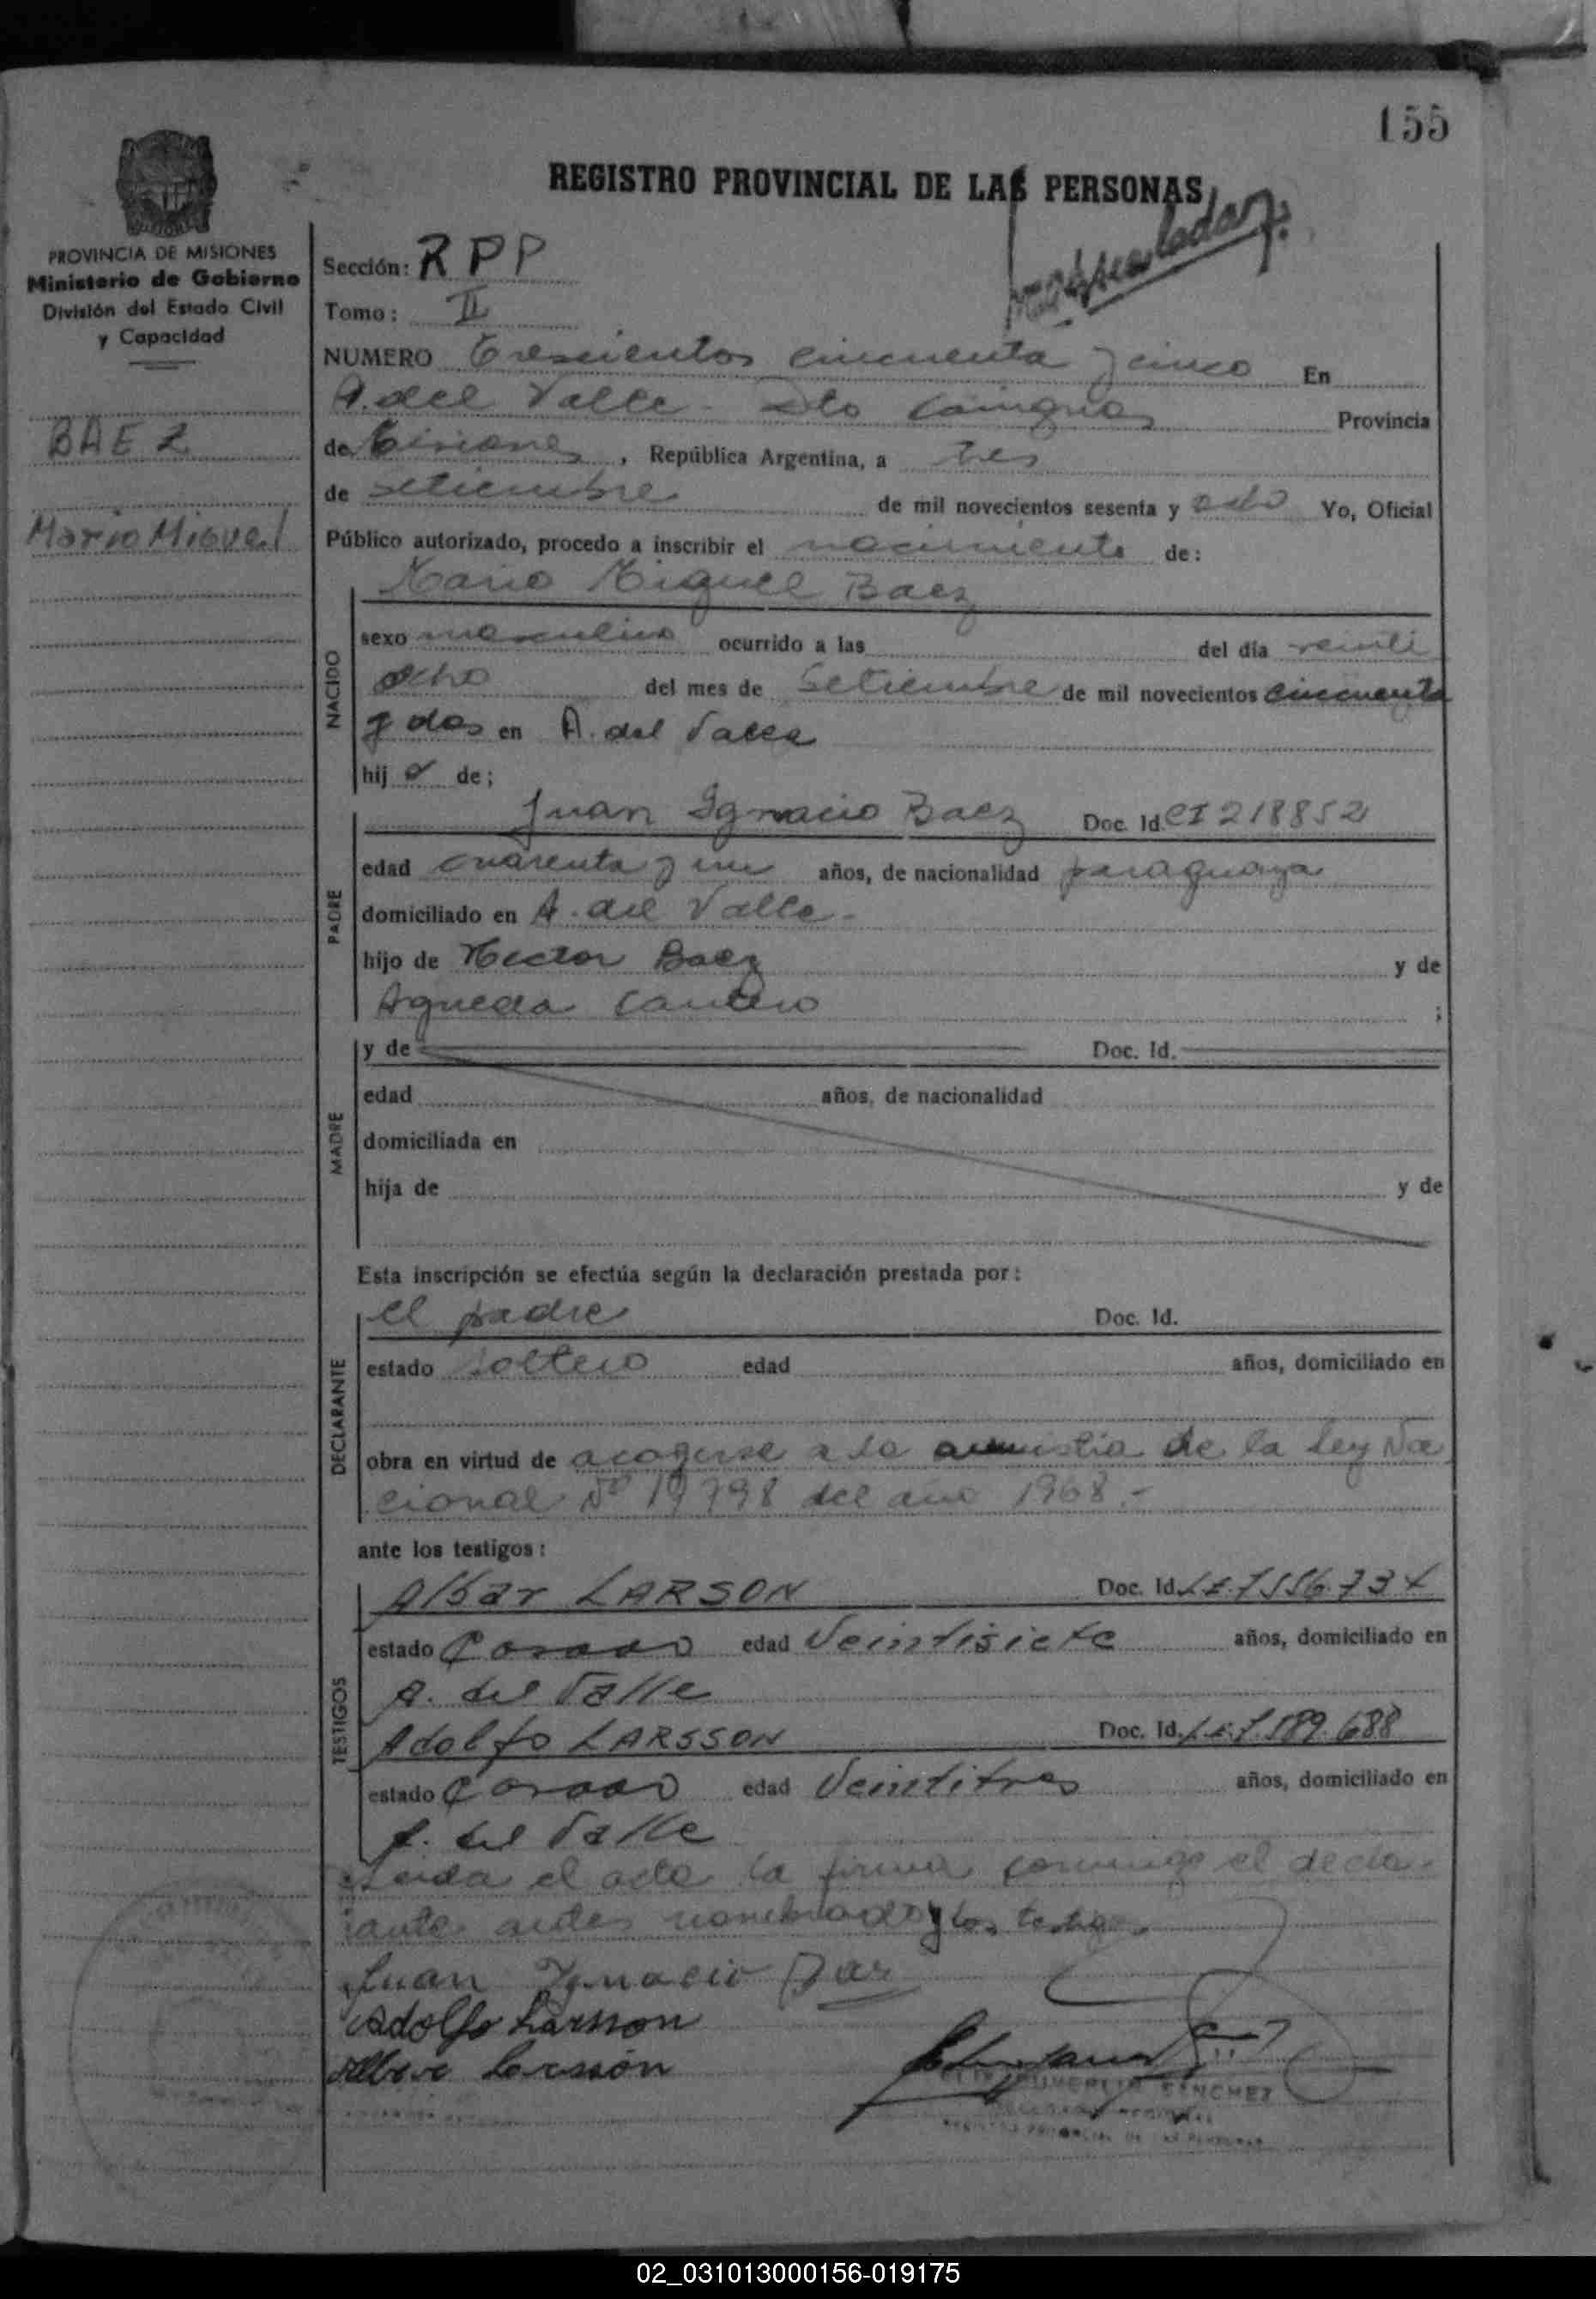 155
REGISTRO PROVINCIAL DE LAS PERSONAS
PROVINCIA DE MISIONES
Ministerio de Gobierno
División del Estado Civil
y Capacidad
BAEZ
Mario Miguel
Sección: RPP
Tomo: II
NUMERO Trescientos cincuenta y cinco En
A. del Valle - Dto Cainguas Provincia
de Misiones, República Argentina, a tres
de setiembre de mil novecientos sesenta y ocho Yo, Oficial
Público autorizado, procedo a inscribir el nacimiento de:
Mario Miguel Baez
NACIDO
sexo masculino ocurrido a las del día veinti
ocho del mes de Setiembre de mil novecientos cincuenta
y dos en A. del Valle
hijo de;
PADRE
Juan Ignacio Baez Doc. Id. CI 218852
edad cuarenta y un años, de nacionalidad paraguaya
domiciliado en A. del Valle.-
hijo de Hector Baez y de
Agueda Cantero ;
MADRE
y de Doc. Id.
edad años, de nacionalidad
domiciliada en
hija de y de
Esta inscripción se efectúa según la declaración prestada por:
DECLARANTE
el padre Doc. Id.
estado soltero edad años, domiciliado en
obra en virtud de acogerse a la amnistia de la ley Na
cional Nº 17798 del año 1968.-
ante los testigos:
TESTIGOS
Albar LARSON Doc. Id. L.E. 7.556.734
estado Casado edad Veintisiete años, domiciliado en
A. del Valle
Adolfo LARSSON Doc. Id. L.E. 7.589.688
estado Casado edad Veintitres años, domiciliado en
A. del Valle
Leida el acta la firma conmigo el decla-
rante antes nombrado y los testigos
Juan Ignacio Baez
Adolfo Larsson
Larssón
SANCHEZ
REGISTRO PROVINCIAL DE LAS PERSONAS
02_031013000156-019175